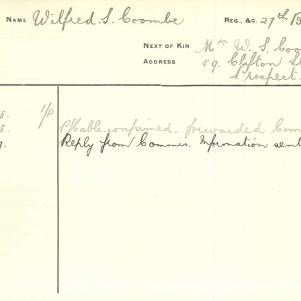 NAME Wilfred. S. Coombe
REG. &c. 27th B
NEXT OF KIN Mrs W. S. Coo
ADDRESS 59. Clifton St
Prospect.
E. 1/P P/Cable confirmed. forwarded Com
E. Reply from Commrs. Information sent